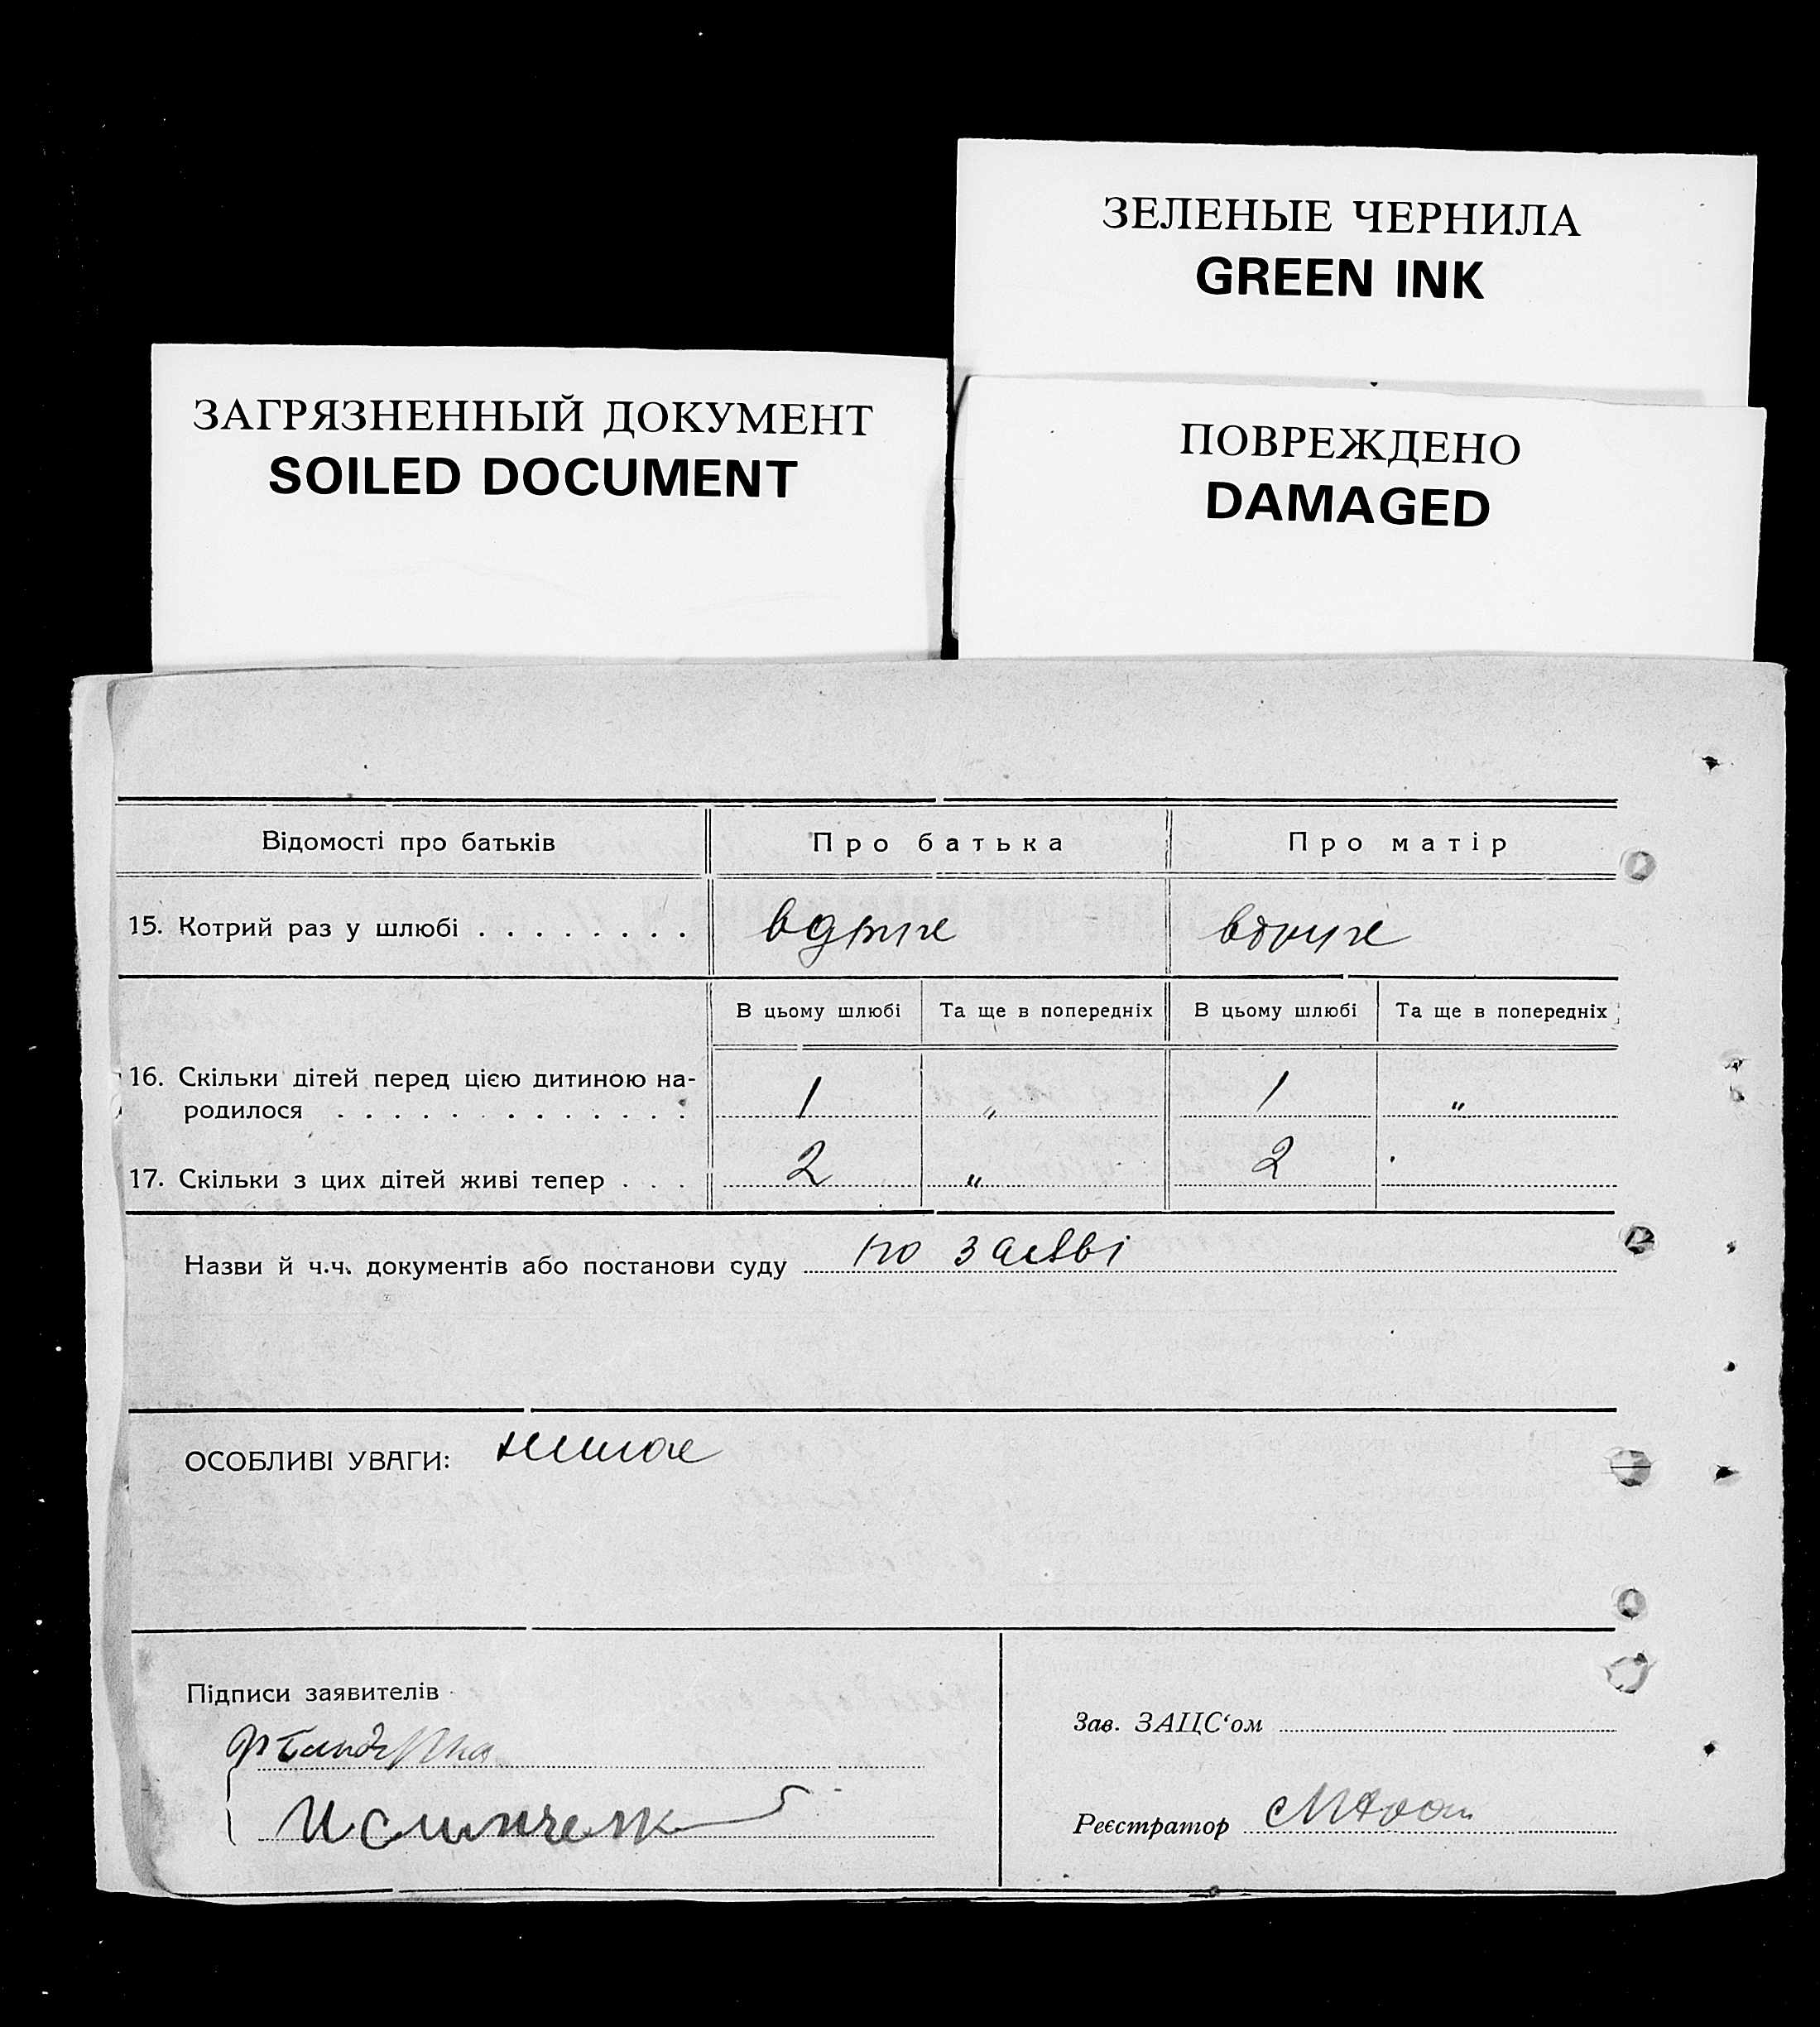 ЗЕЛЕНЫЕ ЧЕРНИЛА
GREEN INK
ЗАГРЯЗНЕННЫЙ ДОКУМЕНТ
SOILED DOCUMENT
ПОВРЕЖДЕНО
DAMAGED
Відомості про батьків Про батька Про матір
15. Котрий раз у шлюбі . . . . . . . . вдруге вдруге
В цьому шлюбі Та ще в попередніх В цьому шлюбі Та ще в попередніх
16. Скільки дітей перед цією дитиною на-
родилося . . . . . . . . . . . . . 1 „ 1 „
17. Скільки з цих дітей живі тепер . . . 2 „ 2
Назви й ч.ч. документів або постанови суду по заяві
ОСОБЛИВІ УВАГИ: немає
Підписи заявителів
Зав. ЗАЦС‘ом
Реєстратор